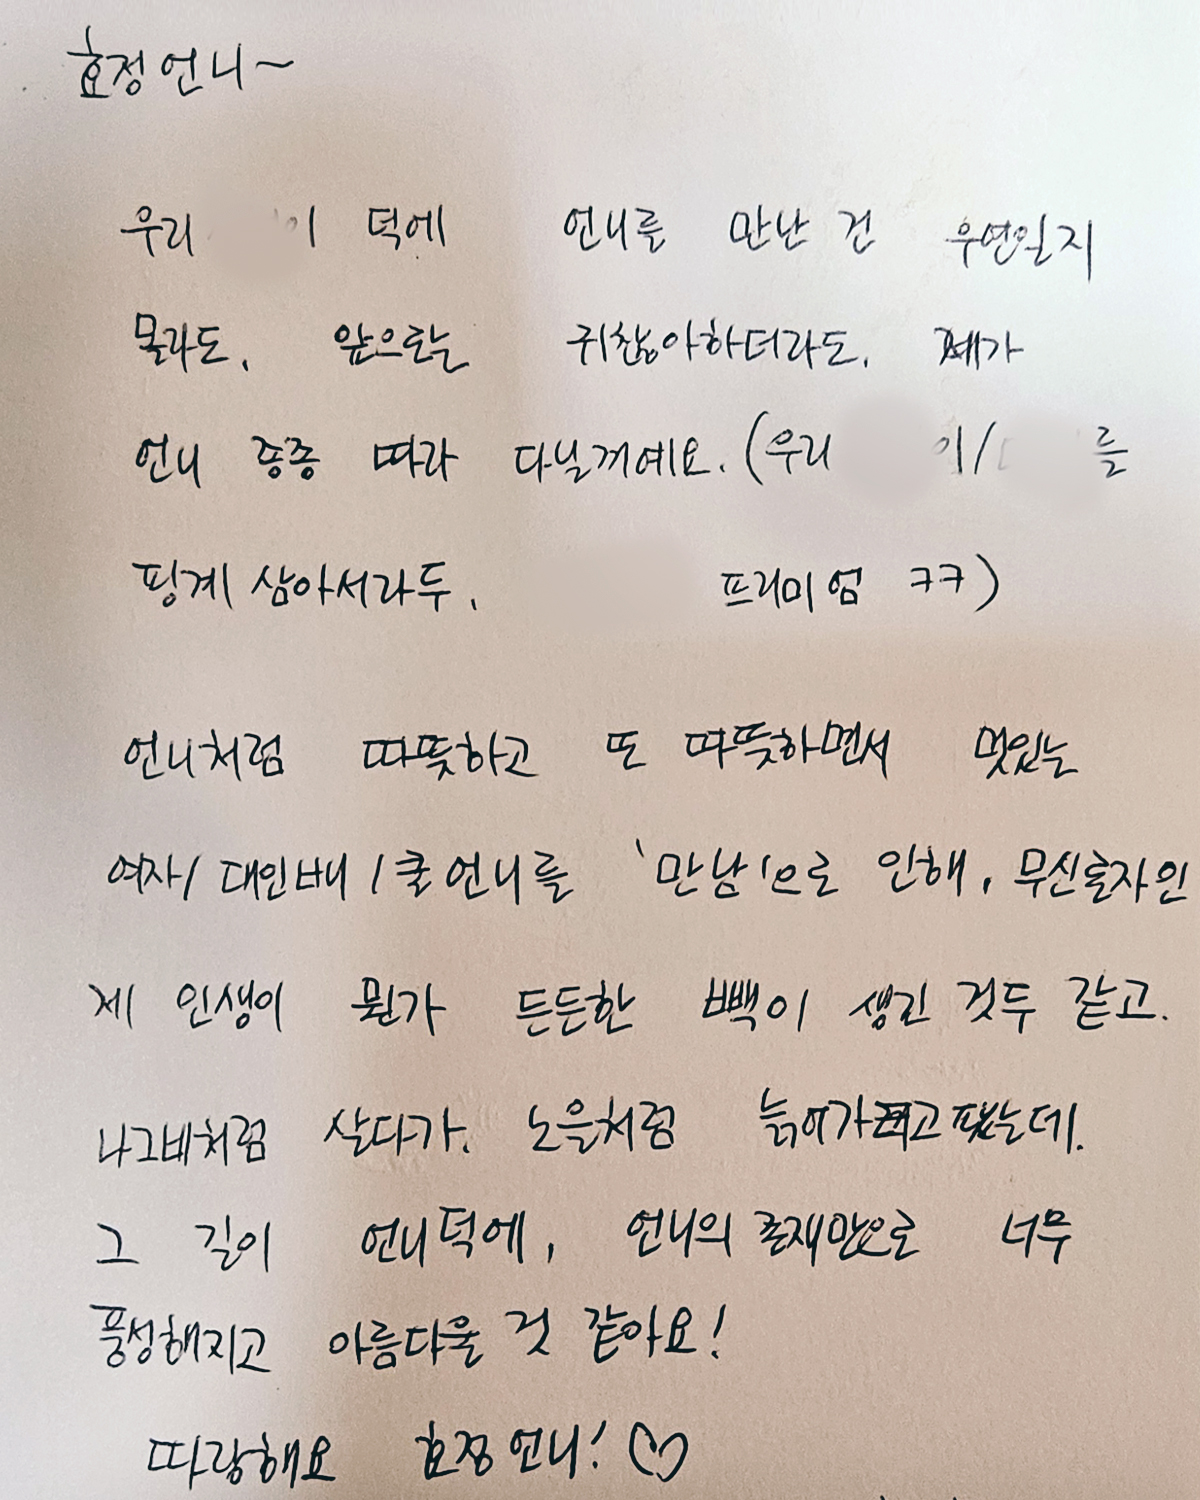 효정언니~
우리 이 덕에 언니를 만난 건 우연일지
몰라도, 앞으로는 귀찮아하더라도, 제가
언니 종종 따라 다닐꺼예요. (우리 이/ 를
핑계 삼아서라두, 프리미엄 ㅋㅋ)
언니처럼 따뜻하고 또 따뜻하면서 멋있는
여자/대인배/쿨언니를 '만남'으로 인해, 무신효자인
제 인생이 뭔가 든든한 빽이 생긴 것두 같고.
나그네처럼 살다가, 노을처럼 늙어가려고 했는데,
그 길이 언니덕에, 언니의 존재만으로 너무
풍성해지고 아름다울 것 같아요!
따랑해요 효정언니! ♡